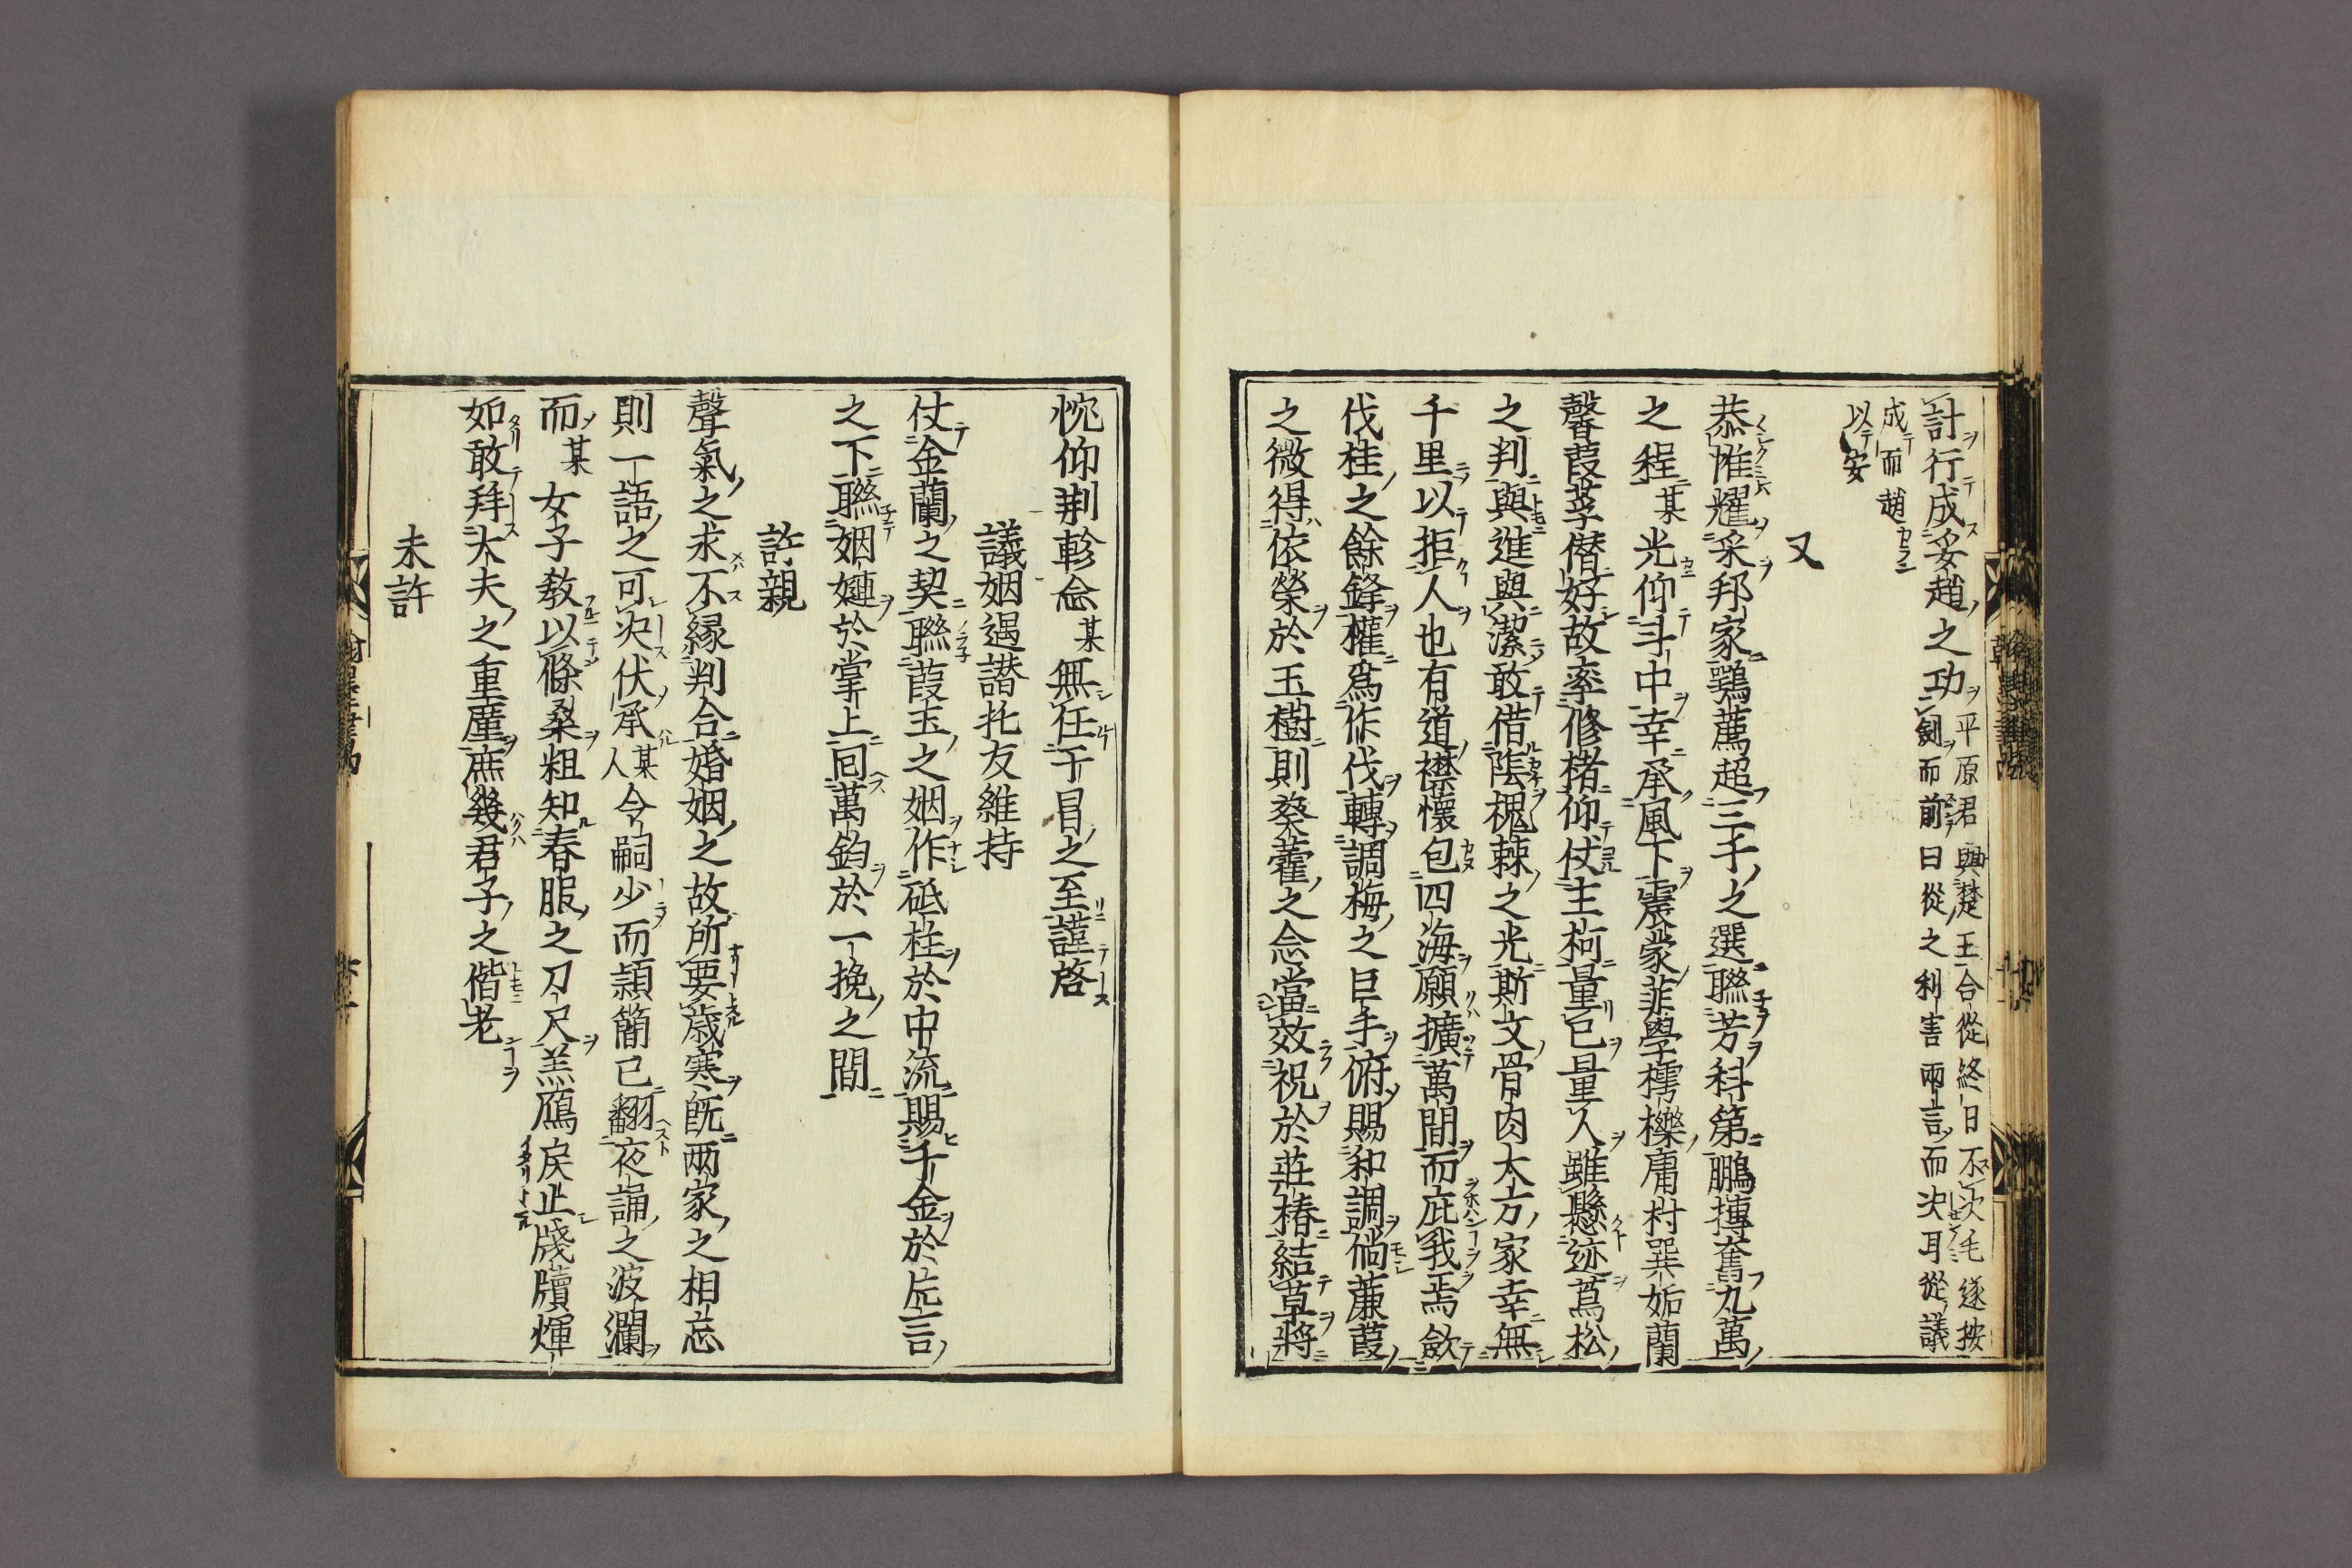 計行成妥趙之功平原君與楚王合從終日不決毛遂按
劍而前曰從之利害兩言而决耳從議
成而趙
以安
又
恭惟耀采邦家鶚薦超三千之選聯芳科第鵬摶奮九萬
之程某光仰斗中幸承風下震蒙菲學樗櫟庸材巽姤蘭
馨葭莩僭好故率修楮仰仗主柯量已量人雖懸迹蔦松
之判與進與潔敢借陰槐棘之光斯文骨肉大方家幸無
千里以拒人也有道襟懷包四海願擴萬間而庇我焉歛
伐桂之餘鋒權爲作伐轉調梅之巨手俯賜和調倘蒹葭
之微得依榮於玉樹則葵藿之念當效祝於莊椿結草將
忱仰荆軫念某無任干冒之至謹啓
議姻遇譛托友維持
仗金蘭之契聯葭玉之姻作砥柱於中流賜千金於片言
之下聯姻嫿於掌上回萬鈞於一挽之間
許親
聲氣之求不緣判合婚姻之故所要歲寒旣兩家之相忘
則一語之可决伏承某人令嗣少而頴簡已翻夜誦之波瀾
而某女子敎以條桑粗知春服之刀尺羔鴈戾止牋牘煇
如敢拜大夫之重厪庶幾君子之偕老
未許